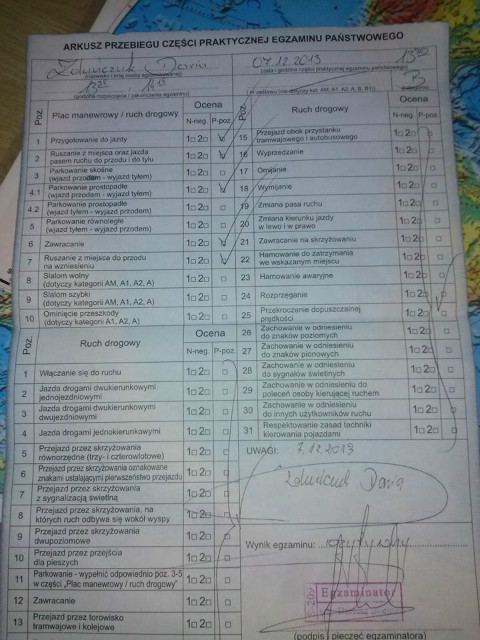 ARKUSZ PRZEBIEGU CZĘŚCI PRAKTYCZNEJ EGZAMINU PAŃSTWOWEGO
Daria 07.12.2013
(data i godzina części praktycznej egzaminu państwowego)
B
(godzina rozpoczęcia / zakończenia egzaminu)
Poz. Plac manewrowy / ruch drogowy Ocena
N-neg. P-poz.
1 Przygotowanie do jazdy 1□ 2□
2 Ruszanie z miejsca oraz jazda
pasem ruchu do przodu i do tyłu 1□ 2□
3 Parkowanie skośne
(wjazd przodem - wyjazd tyłem) 1□ 2□ □
4.1 Parkowanie prostopadłe
(wjazd przodem - wyjazd tyłem) 1□ 2□
4.2 Parkowanie prostopadłe
(wjazd tyłem - wyjazd przodem) 1□ 2□ □
5 Parkowanie równoległe
(wjazd tyłem - wyjazd przodem) 1□ 2□ □
6 Zawracanie 1□ 2□
7 Ruszanie z miejsca do przodu
na wzniesieniu 1□ 2□
8 Slalom wolny
(dotyczy kategorii AM, A1, A2, A) 1□ 2□ □
9 Slalom szybki
(dotyczy kategorii AM, A1, A2, A) 1□ 2□ □
10 Ominięcie przeszkody
(dotyczy kategorii A1, A2, A) 1□ 2□ □
Poz. Ruch drogowy Ocena
N-neg. P-poz.
1 Włączanie się do ruchu 1□ 2□ □
2 Jazda drogami dwukierunkowymi
jednojezdniowymi 1□ 2□ □
3 Jazda drogami dwukierunkowymi
dwujezdniowymi 1□ 2□ □
4 Jazda drogami jednokierunkowymi 1□ 2□ □
5 Przejazd przez skrzyżowania
równorzędne (trzy- i czterowlotowe) 1□ 2□ □
6 Przejazd przez skrzyżowania oznakowane
znakami ustalającymi pierwszeństwo przejazdu 1□ 2□ □
7 Przejazd przez skrzyżowania
z sygnalizacją świetlną 1□ 2□ □
8 Przejazd przez skrzyżowania, na
których ruch odbywa się wokół wyspy 1□ 2□ □
9 Przejazd przez skrzyżowania
dwupoziomowe 1□ 2□ □
10 Przejazd przez przejścia
dla pieszych 1□ 2□ □
11 Parkowanie - wypełnić odpowiednio poz. 3-5
w części „Plac manewrowy / ruch drogowy" 1□ 2□ □
12 Zawracanie 1□ 2□ □
13 Przejazd przez torowisko
tramwajowe i kolejowe 1□ 2□ □
Poz. Ruch drogowy Ocena
N-neg. P-poz.
15 Przejazd obok przystanku
tramwajowego i autobusowego 1□ 2□ □
16 Wyprzedzanie 1□ 2□ □
17 Omijanie 1□ 2□ □
18 Wymijanie 1□ 2□ □
19 Zmiana pasa ruchu 1□ 2□ □
20 Zmiana kierunku jazdy
w lewo i w prawo 1□ 2□ □
21 Zawracanie na skrzyżowaniu 1□ 2□ □
22 Hamowanie do zatrzymania
we wskazanym miejscu 1□ 2□ □
23 Hamowanie awaryjne 1□ 2□ □
24 Rozprzęganie 1□ 2□ □
25 Przekroczenie dopuszczalnej
prędkości 1□ 2□ □
26 Zachowanie w odniesieniu
do znaków poziomych 1□ 2□ □
27 Zachowanie w odniesieniu
do znaków pionowych 1□ 2□ □
28 Zachowanie w odniesieniu
do sygnałów świetlnych 1□ 2□ □
29 Zachowanie w odniesieniu do
poleceń osoby kierującej ruchem 1□ 2□ □
30 Zachowanie w odniesieniu
do innych użytkowników ruchu 1□ 2□ □
31 Respektowanie zasad techniki
kierowania pojazdami 1□ 2□ □
UWAGI: 7.12.2013
Daria
Wynik egzaminu: pozytywny
Egzaminator
(podpis i pieczęć egzaminatora)